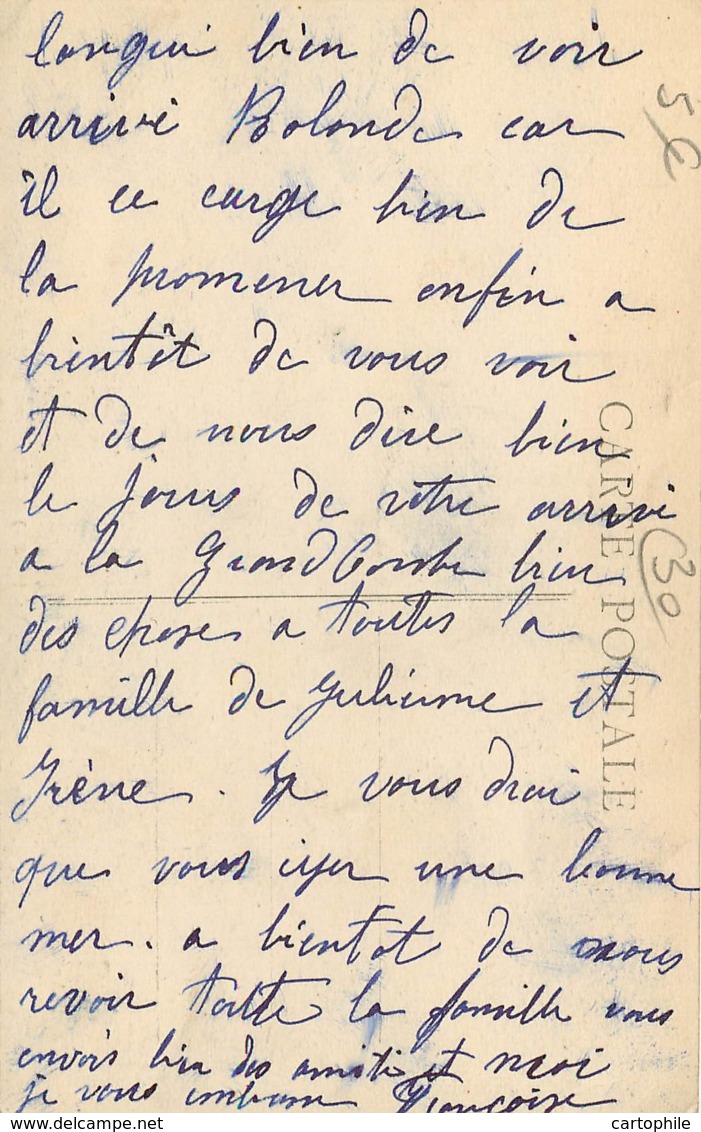 langui bien de voir
arrivé Rolande car
il ce carge bien de
la promener enfin a
bientôt de vous voir
et de nous dire bien
le jours de vôtre arrivé
a la GrandCombe bien
des choses a toutes la
famille de Guliume et
Irène. Je vous drai
que vous iyer une bonne
mer. a bientot de nous
revoir toute la famille vous
envois bien des amitié et moi
je vous embrasse Françoise
CARTE POSTALE
5 €
30
cartophile